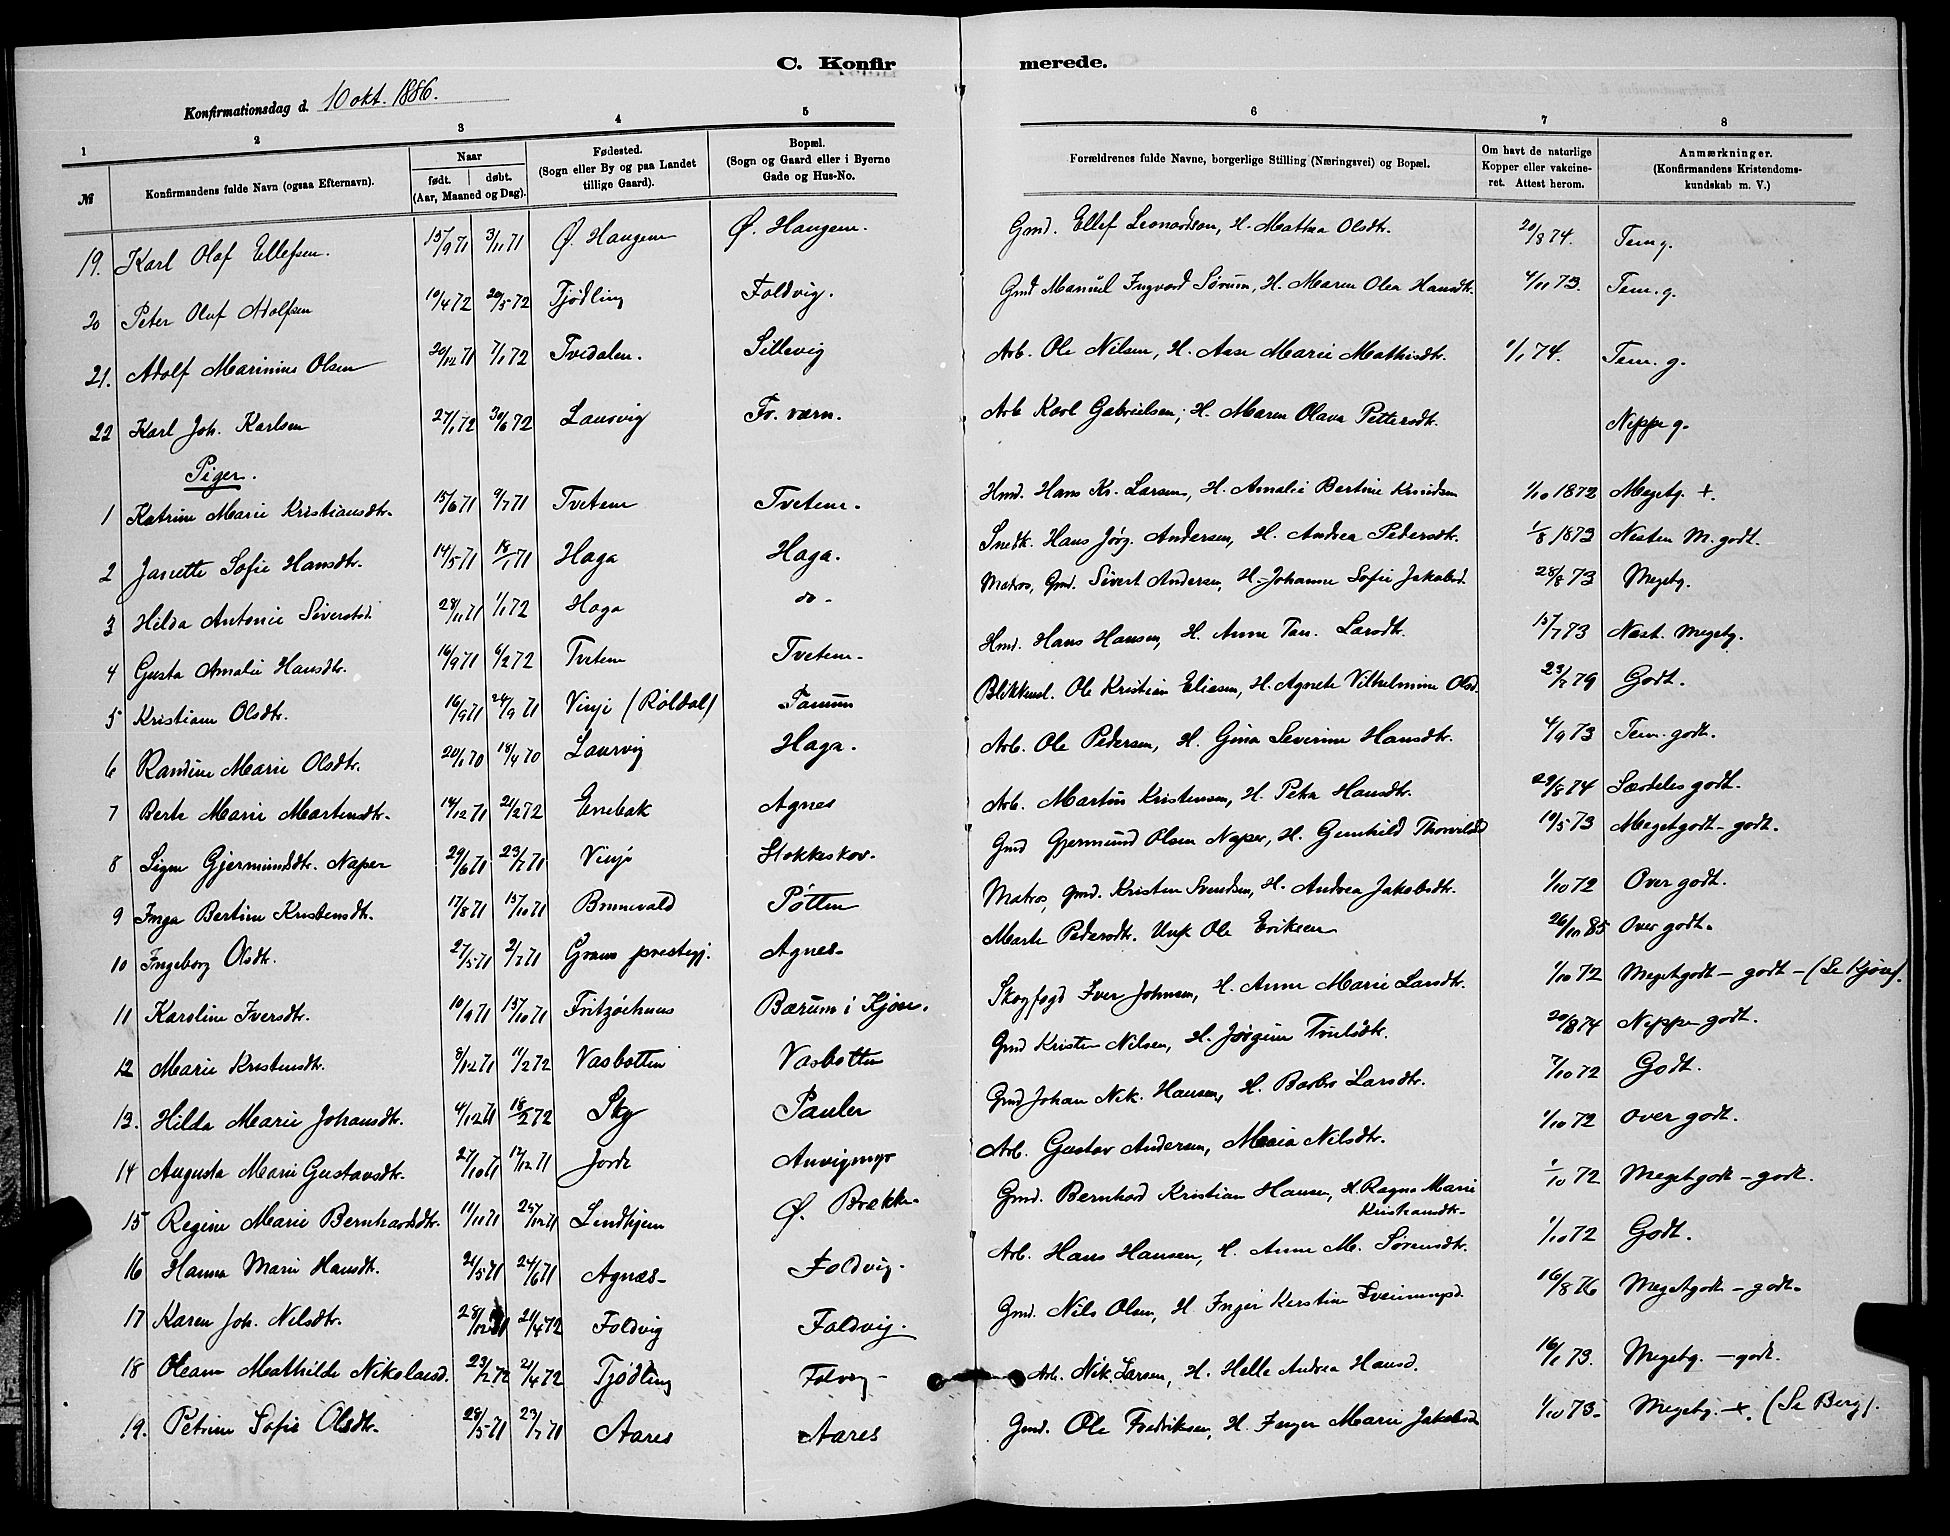 C. Konfirmerede.
Konfirmationsdag d. 10 okt. 1886.
1 2 3 4 5 6 7 8
№ Konfirmandens fulde Navn (ogsaa Efternavn). Naar født. døbt. (Aar, Maaned og Dag). Fødested. (Sogn eller By og paa Landet tillige Gaard). Bopæl. (Sogn og Gaard eller i Byerne Gade og Hus-No. Forældrenes fulde Navne, borgerlige Stilling (Næringsvei) og Bopæl. Om havt de naturlige Kopper eller vakcineret. Attest herom. Anmærkninger. (Konfirmandens Kristendomskundskab m. V.)
19. Karl Olaf Ellefsen. 15/9 71 3/11 71 Ø. Haugene Ø. Haugene. Gmd. Ellef Leonardsen, H. Mathea Olsdtr. 20/8 74. Tem g.
20 Peter Oluf Adolfsen 10/4 72 20/5 72 Tjødling Foldvig. Gmd Manuel Ingvard Sørum, H. Maren Olea Hansdtr. 4/11 73. Tem. g.
21. Adolf Marinius Olsen 20/12 71 7/1 72 Tvedalen. Sillevig Arb. Ole Nilsen, H. Aase Marie Mathisdtr. 1/1 74. Tem. g.
22 Karl Joh. Karlsen 27/1 72 30/6 72 Laurvig Fr. værn. Arb Karl Gabrielsen, H. Maren Olava Pettersdtr. Neppe g.
Piger.
1 Katrine Marie Kristiansdtr. 15/6 71 9/7 71 Tvetene Tvetene. Hmd. Hans Kr. Larsen, H. Amalie Bertine Knudsen 1/10 1872 Megetg. +.
2 Janette Sofie Hansdtr. 14/5 71 18/1 71 Haga Haga. Snedk. Hans Jørg. Andersen, H. Andrea Pedersdtr. 1/8 1873 Nesten M. godt.
3 Hilda Antonie Siversd. 28/11 71 1/1 72 Haga do - Matros, Gmd. Sivert Andersen, H. Johanne Sofie Jakobsd. 28/8 73 Megetg.
4 Gusta Amalie Hansdtr. 16/9 71 6/2 72 Tvetene Tvetene. Hmd. Hans Hansen, H. Anne Tan. Larsdtr. 15/7 73 Næst. megetg.
5 Kristiane Olsdtr. 16/9 71 24/9 71 Vinje (Røldal) Tanum Blikkensl. Ole Kristian Eliasen, H. Agnete Vilhelmine Olsd. 23/7 79 Godt.
6 Randine Marie Olsdtr. 20/1 70 18/4 70 Laurvig Haga. Arb. Ole Pedersen, H. Gina Severine Hansdtr. 4/9 73 Tem. godt.
7 Berte Marie Martensdtr. 14/12 71 21/2 72 Enebak Agnes Arb. Martin Kristensen, H. Petra Hansdtr. 29/8 74 Særdeles godt.
8 Signe Gjermundsdtr. Naper 29/6 71 23/7 71 Vinje Stokkeskov. Gmd Gjermund Olsen Naper, H. Gunhild Thorvildsd 10/5 73 Megetgodt - godt.
9 Inga Bertine Kristensdtr. 17/8 71 15/10 71 Brunevald Pøtten Matros, gmd. Kristen Svendsen, H. Andrea Jakobsdtr. 1/10 72 Over godt.
10 Ingeborg Olsdtr. 27/5 71 2/7 71 Grans prestegj. Agnes. Marte Pedersdtr. Unk Ole Eriksen 26/10 85 Over godt.
11 Karoline Iversdtr. 10/9 71 15/10 71 Fritzøehuus Bærum i Kjøse. Skogfogd Iver Johnsen, H. Anne Marie Larsdtr. 1/10 72 Megetgodt - godt - (Se Kjøse).
12 Marie Kristensdtr. 8/12 71 11/2 72 Vasbotten Vasbotten Gmd Kristen Nilsen, H. Jørgine Trulsdtr. 20/8 74 Neppe godt.
13. Hilda Marie Johansdtr. 4/12 71 18/2 72 Sky Pauler Gmd Johan Nik. Hansen, H. Barbro Larsdtr. 7/10 72 Godt.
14 Augusta Marie Gustavsdtr. 27/10 71 17/12 71 Jorde Anvigmyr Arb. Gustav Andersen, Maria Nilsdtr. 1/10 72 over godt.
15 Regine Marie Bernhardsdtr. 11/11 71 29/12 71 Lindhjem Ø. Brække. Gmd. Bernhard Kristian Hansen, H. Ragna Marie Kristiansdtr. 1/10 72 Megetgodt - godt.
16 Hanna Marie Hansdtr. 21/5 71 24/6 71 Agnes- Foldvig. Arb. Hans Hansen, H. Anne M. Sørensdtr. 1/10 72 Godt.
17 Karen Joh. Nilsdtr. 28/12 71 21/4 72 Foldvig Foldvig. Gmd. Nils Olsen, H. Inger Kerstine 16/8 76 Megetgodt - godt.
18 Oleane Mathilde Nikolaisd. 23/2 72 21/4 72 Tjødling Folvig - Arb. Nik. Larsen, H. Helle Andrea Hansd. 16/1 73. Megetg. - godt.
19. Petrine Sofie Olsdtr. 28/5 71 23/7 71 Aares Aares Gmd. Ole Fredriksen, H. Inger Marie Jakobsd 1/10 73- Megetg. +. (Se Berg).